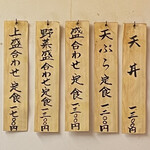 天丼 一三〇〇円
天ぷら定食 一三〇〇円
盛合わせ定食 一三〇〇円
野菜盛合わせ定食 一三〇〇円
上盛合わせ定食 一七〇〇円